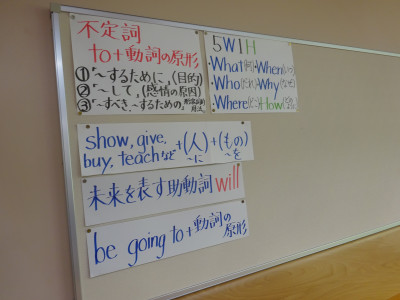 不定詞
to+動詞の原形
①「〜するために」(目的)
②「〜して」(感情の原因)
③「〜すべき、〜するための」
5W1H
・What(何)・When(いつ)
・Who(だれ)・Why(なぜ)
・Where(どこ)・How(どう)
show, give,
buy, teachなど+(人)+(もの)
〜に 〜を
未来を表す助動詞 will
be going to+動詞の
原形